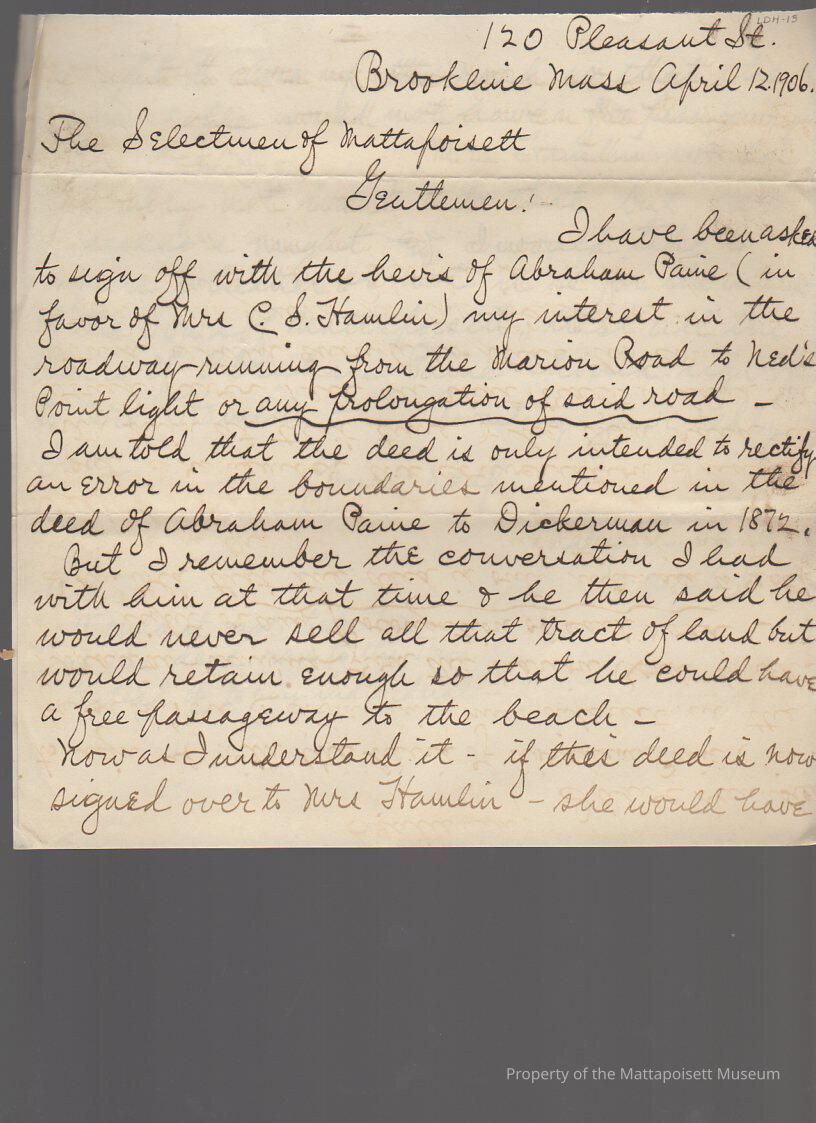 LDH-15
120 Pleasant St.
Brookline Mass April 12. 1906.
The Selectmen of Mattapoisett
Gentlemen! -
I have been asked
to sign off with the heirs of Abraham Paine ( in
favor of Mrs C. S. Hamlin) my interest in the
roadway running from the Marion Road to Ned's
Point light or any prolongation of said road -
I am told that the deed is only intended to rectify
an error in the boundaries mentioned in the
deed of Abraham Paine to Dickerman in 1872.
But I remember the conversation I had
with him at that time & he then said he
would never sell all that tract of land but
would retain enough so that he could have
a free passageway to the beach -
Now as I understand it - if this deed is now
signed over to Mrs Hamlin - she would have
Property of the Mattapoisett Museum